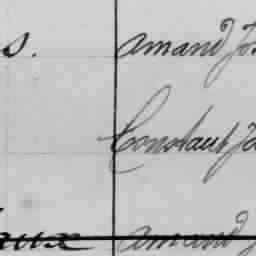 s. Amand Jo
Constant Jo
aux Amand J